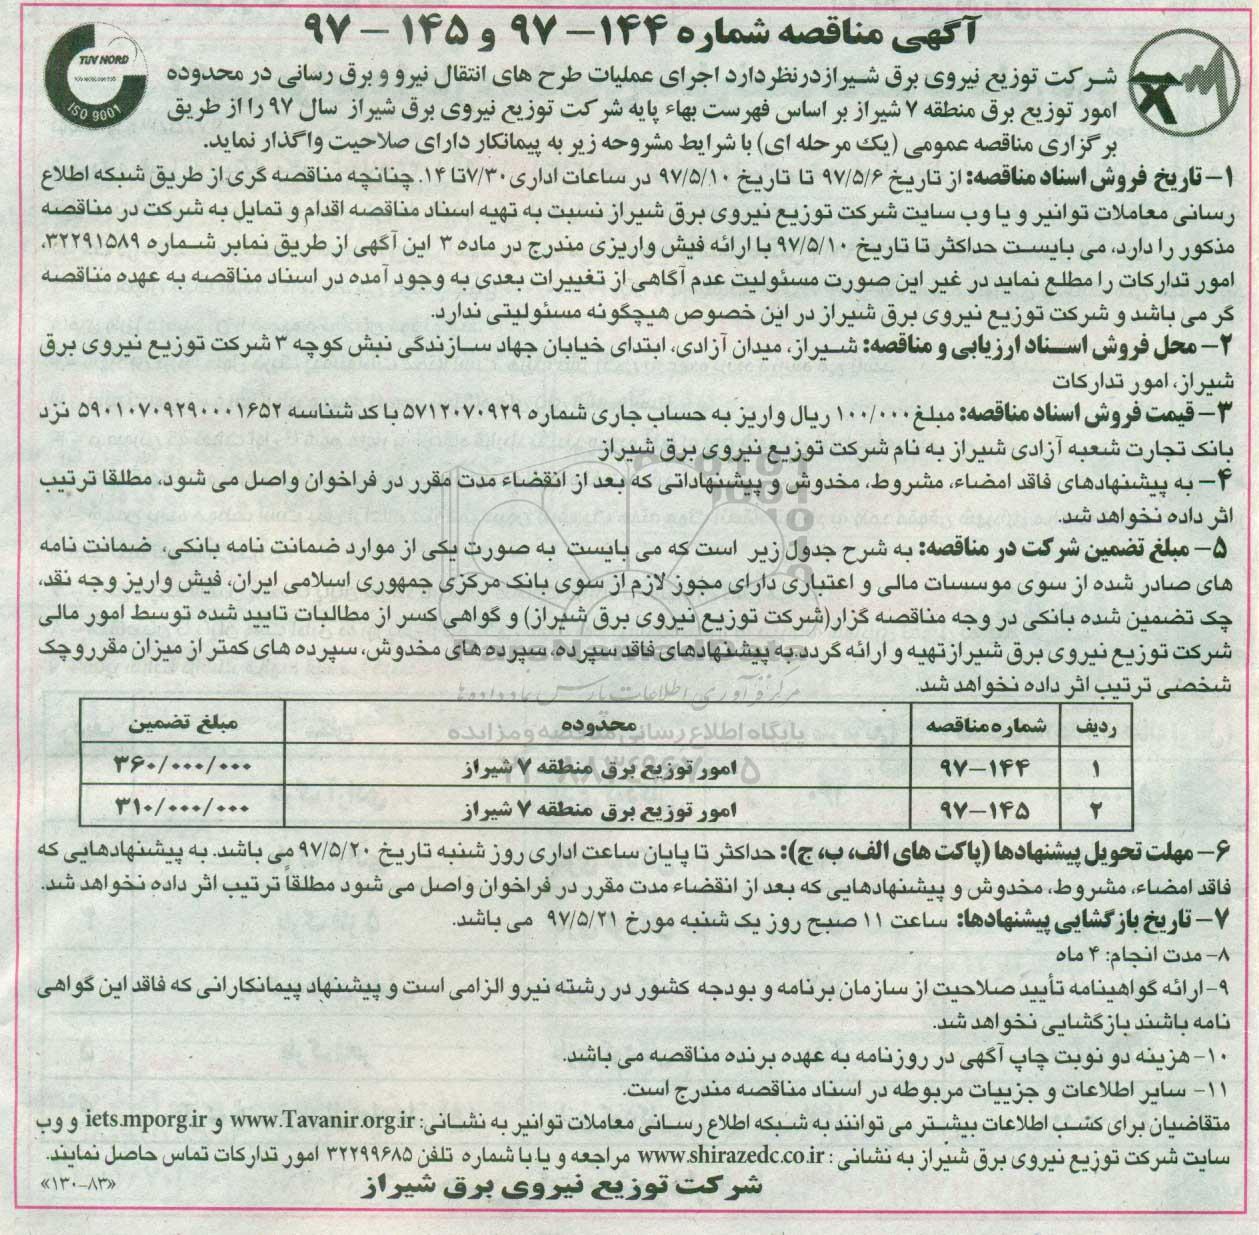 آگهی مناقصه شماره ۱۴۴-۹۷ و ۱۴۵-۹۷
TUV NORD
ISO 9001
شرکت توزیع نیروی برق شیراز درنظر دارد اجرای عملیات طرح های انتقال نیرو و برق رسانی در محدوده
امور توزیع برق منطقه ۷ شیراز بر اساس فهرست بهاء پایه شرکت توزیع نیروی برق شیراز سال ۹۷ را از طریق
برگزاری مناقصه عمومی (یک مرحله ای) با شرایط مشروحه زیر به پیمانکار دارای صلاحیت واگذار نماید.
۱- تاریخ فروش اسناد مناقصه: از تاریخ ۹۷/۵/۶ تا تاریخ ۹۷/۵/۱۰ در ساعات اداری ۷/۳۰ تا ۱۴. چنانچه مناقصه گری از طریق شبکه اطلاع
رسانی معاملات توانیر و یا وب سایت شرکت توزیع نیروی برق شیراز نسبت به تهیه اسناد مناقصه اقدام و تمایل به شرکت در مناقصه
مذکور را دارد، می بایست حداکثر تا تاریخ ۹۷/۵/۱۰ با ارائه فیش واریزی مندرج در ماده ۳ این آگهی از طریق نمابر شماره ۳۲۲۹۱۵۸۹،
امور تدارکات را مطلع نماید در غیر این صورت مسئولیت عدم آگاهی از تغییرات بعدی به وجود آمده در اسناد مناقصه به عهده مناقصه
گر می باشد و شرکت توزیع نیروی برق شیراز در این خصوص هیچگونه مسئولیتی ندارد.
۲- محل فروش اسناد ارزیابی و مناقصه: شیراز، میدان آزادی، ابتدای خیابان جهاد سازندگی نبش کوچه ۳ شرکت توزیع نیروی برق
شیراز، امور تدارکات
۳- قیمت فروش اسناد مناقصه: مبلغ ۱۰۰/۰۰۰ ریال واریز به حساب جاری شماره ۵۷۱۲۰۷۰۹۲۹ با کد شناسه ۵۹۰۱۰۷۰۹۲۹۰۰۰۱۶۵۲ نزد
بانک تجارت شعبه آزادی شیراز به نام شرکت توزیع نیروی برق شیراز
۴- به پیشنهادهای فاقد امضاء، مشروط، مخدوش و پیشنهاداتی که بعد از انقضاء مدت مقرر در فراخوان واصل می شود، مطلقا ترتیب
اثر داده نخواهد شد.
۵- مبلغ تضمین شرکت در مناقصه: به شرح جدول زیر است که می بایست به صورت یکی از موارد ضمانت نامه بانکی، ضمانت نامه
های صادر شده از سوی موسسات مالی و اعتباری دارای مجوز لازم از سوی بانک مرکزی جمهوری اسلامی ایران، فیش واریز وجه نقد،
چک تضمین شده بانکی در وجه مناقصه گزار(شرکت توزیع نیروی برق شیراز) و گواهی کسر از مطالبات تایید شده توسط امور مالی
شرکت توزیع نیروی برق شیراز تهیه و ارائه گردد. به پیشنهادهای فاقد سپرده، سپرده های مخدوش، سپرده های کمتر از میزان مقرر و چک
شخصی ترتیب اثر داده نخواهد شد.
مرکز فرآوری اطلاعات پارس نماد داده ها
پایگاه اطلاع رسانی مناقصه و مزایده
ردیف شماره مناقصه محدوده مبلغ تضمین
۱ ۹۷-۱۴۴ امور توزیع برق منطقه ۷ شیراز ۳۶۰/۰۰۰/۰۰۰
۲ ۹۷-۱۴۵ امور توزیع برق منطقه ۷ شیراز ۳۱۰/۰۰۰/۰۰۰
۶- مهلت تحویل پیشنهادها (پاکت های الف، ب، ج): حداکثر تا پایان ساعت اداری روز شنبه تاریخ ۹۷/۵/۲۰ می باشد. به پیشنهادهایی که
فاقد امضاء، مشروط، مخدوش و پیشنهادهایی که بعد از انقضاء مدت مقرر در فراخوان واصل می شود مطلقاً ترتیب اثر داده نخواهد شد.
۷- تاریخ بازگشایی پیشنهادها: ساعت ۱۱ صبح روز یک شنبه مورخ ۹۷/۵/۲۱ می باشد.
۸- مدت انجام: ۴ ماه
۹-ارائه گواهینامه تأیید صلاحیت از سازمان برنامه و بودجه کشور در رشته نیرو الزامی است و پیشنهاد پیمانکارانی که فاقد این گواهی
نامه باشند بازگشایی نخواهد شد.
۱۰- هزینه دو نوبت چاپ آگهی در روزنامه به عهده برنده مناقصه می باشد.
۱۱- سایر اطلاعات و جزییات مربوطه در اسناد مناقصه مندرج است.
متقاضیان برای کسب اطلاعات بیشتر می توانند به شبکه اطلاع رسانی معاملات توانیر به نشانی: www.Tavanir.org.ir و iets.mporg.ir و وب
سایت شرکت توزیع نیروی برق شیراز به نشانی : www.shirazedc.co.ir مراجعه و یا با شماره تلفن ۳۲۲۹۹۶۸۵ امور تدارکات تماس حاصل نمایند.
شرکت توزیع نیروی برق شیراز
«۱۳۰-۸۳»